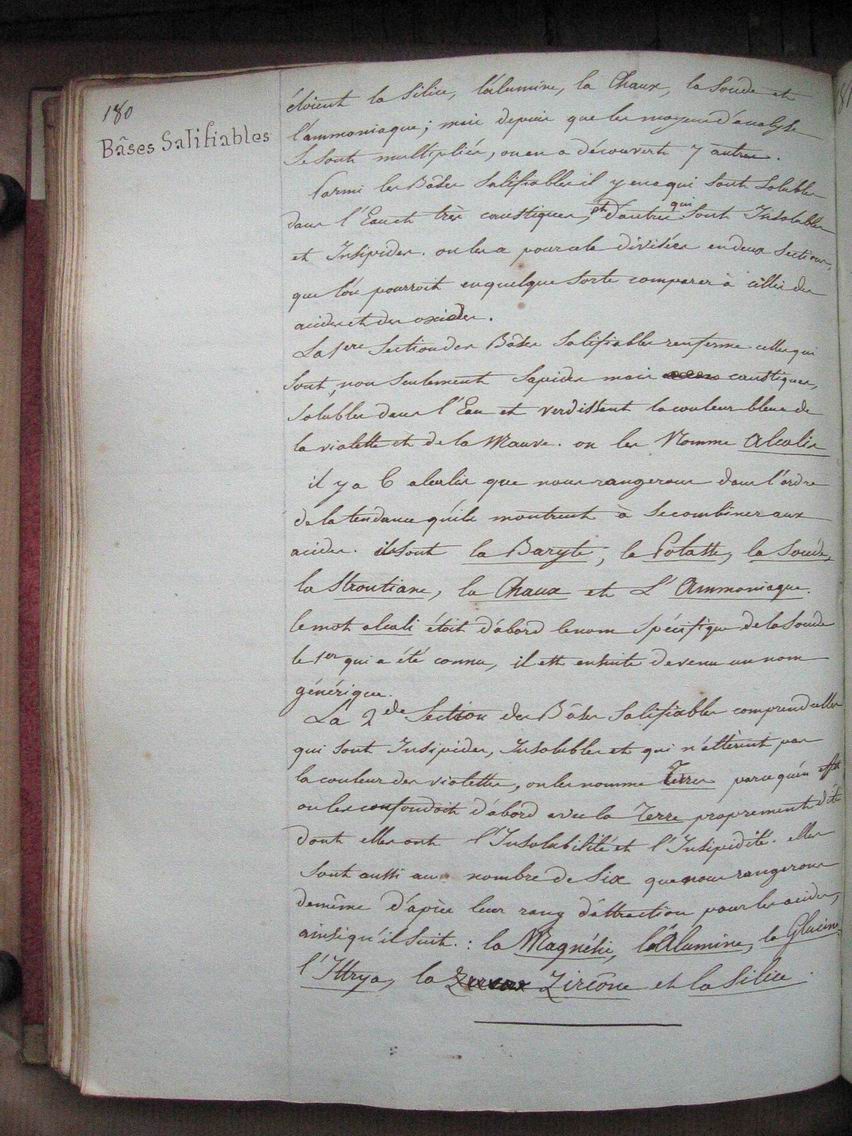 180
Bâses Salifiables
étoient la Silice, l'alumine, la Chaux, la Soude et
l'ammoniaque; mais depuis que les moyens d'analyse
se sont multipliés, on en a découvert 7 autres.
Parmi les Bâses Salifiables il y en a qui sont Solubles
dans l'Eau et très caustiques, et d'autres qui sont Insolubles
et Insipides. on les a pour cela divisées en deux Sections,
que l'on pourroit en quelque sorte comparer à celles des
acides et des oxides.
La 1ere Section des Bâses Salifiables renferme celles qui
sont, non seulement Sapides mais caustiques,
solubles dans l'Eau et verdissent la couleur bleue de
la violette et de la Mauve. on les Nomme alcalis
il y a 6 alcalis que nous rangerons dans l'ordre
de la tendance qu'ils montrent à se combiner aux
acides. ils sont la Baryte, la Potasse, la Soude,
la Strontiane, la Chaux et L'Ammoniaque.
le mot alcali étoit d'abord le nom Spécifique de la Soude
le 1er qui a été connu, il est ensuite devenu un nom
générique.
La 2de Section des Bâses Salifiables comprend celles
qui sont Insipides, Insolubles et qui n'altèrent pas
la couleur des violettes, on les nomme Terres parce qu'en effet
on les confondoit d'abord avec la Terre proprement dite
dont elles ont l'Insolubilité et l'Insipidité. elles
sont aussi au nombre de Six que nous rangerons
de même d'après leur rang d'attraction pour les acides,
ainsi qu'il suit. : la Magnésie, l'Alumine, la Glucine,
l'Ittrya, la Zircône et la Silice.